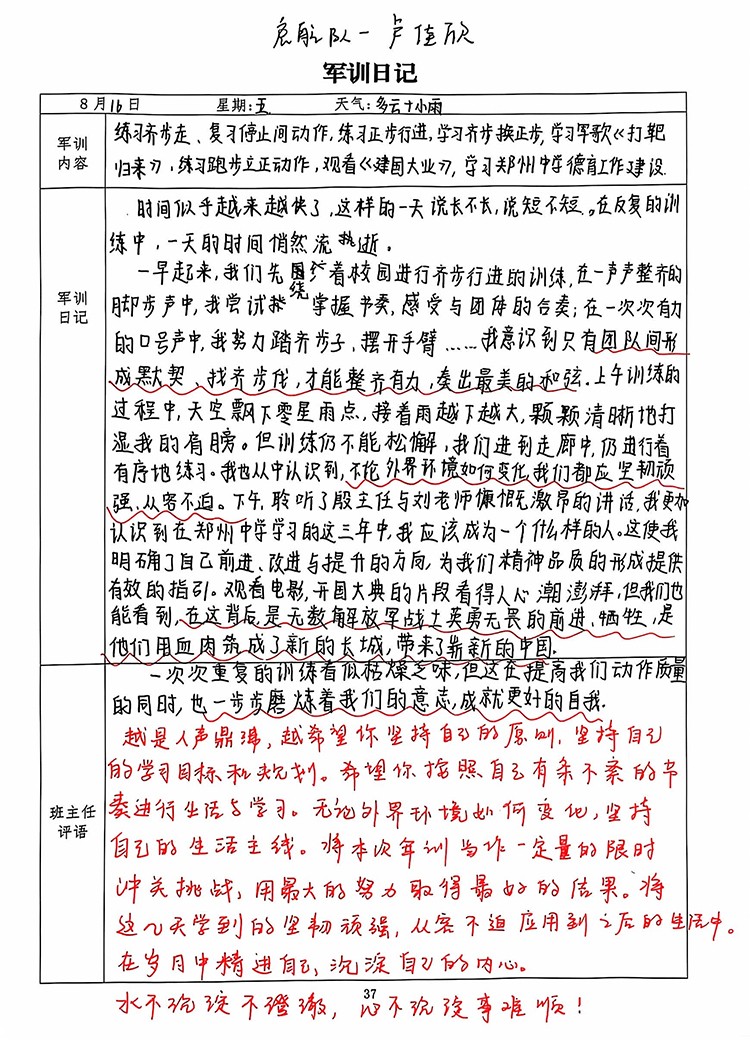 启航队一 卢佳欣
军训日记
8月16日 星期:五 天气:多云十小雨
军训内容
练习齐步走、复习停止间动作,练习正步行进,学习齐步换正步,学习军歌《打靶
归来》、练习跑步立正动作,观看《建国大业》,学习郑州中学德育工作建设.
军训日记
时间似乎越来越快了,这样的一天说长不长,说短不短。在反复的训
练中,一天的时间悄然流逝。
一早起来,我们先围绕着校园进行齐步行进的训练,在一声声整齐的
脚步声中,我尝试掌握节奏,感受与团体的合奏;在一次次有力
的口号声中,我努力踏齐步子,摆开手臂……我意识到只有团队间形
成默契、找齐步伐,才能整齐有力,奏出最美的和弦。上午训练的
过程中,天空飘下零星雨点,接着雨越下越大,颗颗清晰地打
湿我的肩膀。但训练仍不能松懈,我们进到走廊中,仍进行着
有序地练习。我也从中认识到,不论外界环境如何变化,我们都应坚韧顽
强、从容不迫。下午,聆听了殷主任与刘老师慷慨激昂的讲话,我更加
认识到在郑州中学学习的这三年中,我应该成为一个什么样的人。这使我
明确了自己前进、改进与提升的方向,为我们精神品质的形成提供
有效的指引。观看电影,开国大典的片段看得人心潮澎湃,但我们也
能看到,在这背后是无数解放军战士英勇无畏的前进、牺牲,是
他们用血肉筑成了新的长城,带来了崭新的中国.
一次次重复的训练看似枯燥乏味,但这在提高我们动作质量
的同时,也一步步磨炼着我们的意志,成就更好的自我.
班主任评语
越是人声鼎沸,越希望你坚持自己的原则,坚持自己
的学习目标和规划。希望你按照自己有条不紊的节
奏进行生活与学习。无论外界环境如何变化,坚持
自己的生活主线。将本次军训当作一定量的限时
冲关挑战,用最大的努力取得最好的结果。将
这几天学到的坚韧顽强,从容不迫应用到之后的生活中。
在岁月中精进自己,沉淀自己的内心。
37
水不沉淀不澄澈,心不沉淀事难顺!